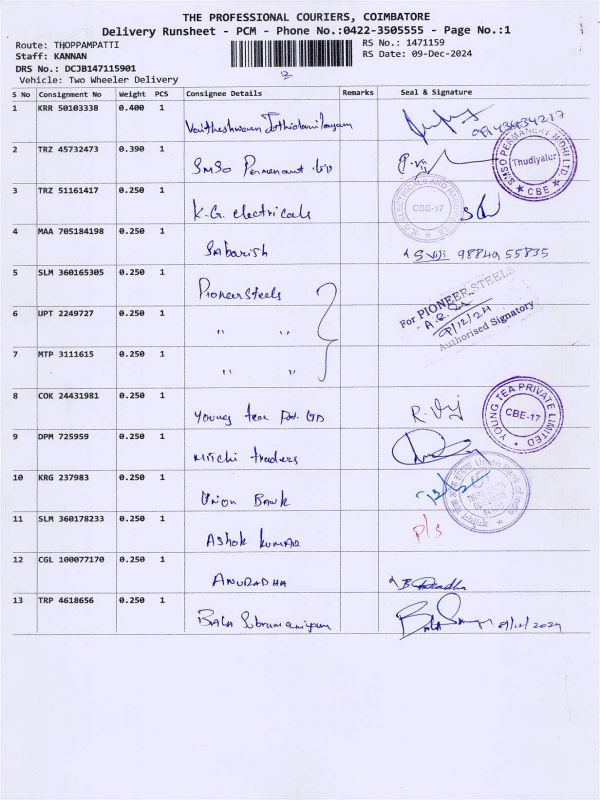 THE PROFESSIONAL COURIERS, COIMBATORE
Delivery Runsheet - PCM - Phone No.:0422-3505555 - Page No.:1
Route: THOPPAMPATTI
RS No.: 1471159
Staff: KANNAN
RS Date: 09-Dec-2024
DRS No.: DCJB147115901
Vehicle: Two Wheeler Delivery
S No Consignment No Weight PCS Consignee Details Remarks Seal & Signature
1 KRR 50103338 0.400 1
2 TRZ 45732473 0.390 1 SMSO Permenant
SMSO PERMANENT NIDHI LTD. Thudiyalur CBE
3 TRZ 51161417 0.250 1 K.G. electricals
K.G. ELECTRICALS AND CBE-17
4 MAA 705184198 0.250 1 Sabarish
5 SLM 360165305 0.250 1 Pioneer Steels
For PIONEER STEELS
09/12/24
Authorised Signatory
6 UPT 2249727 0.250 1 " "
7 MTP 3111615 0.250 1 " "
8 COK 24431981 0.250 1 Young tea Pvt. LTD R. Viji
YOUNG TEA PRIVATE LIMITED CBE-17
9 DPM 725959 0.250 1 traders
10 KRG 237983 0.250 1 Union Bank
Union Bank of India
11 SLM 360178233 0.250 1 Ashok Kumar P/S
12 CGL 100077170 0.250 1 ANURADHA
13 TRP 4618656 0.250 1 Bala Subramaniyam 9/12/2024